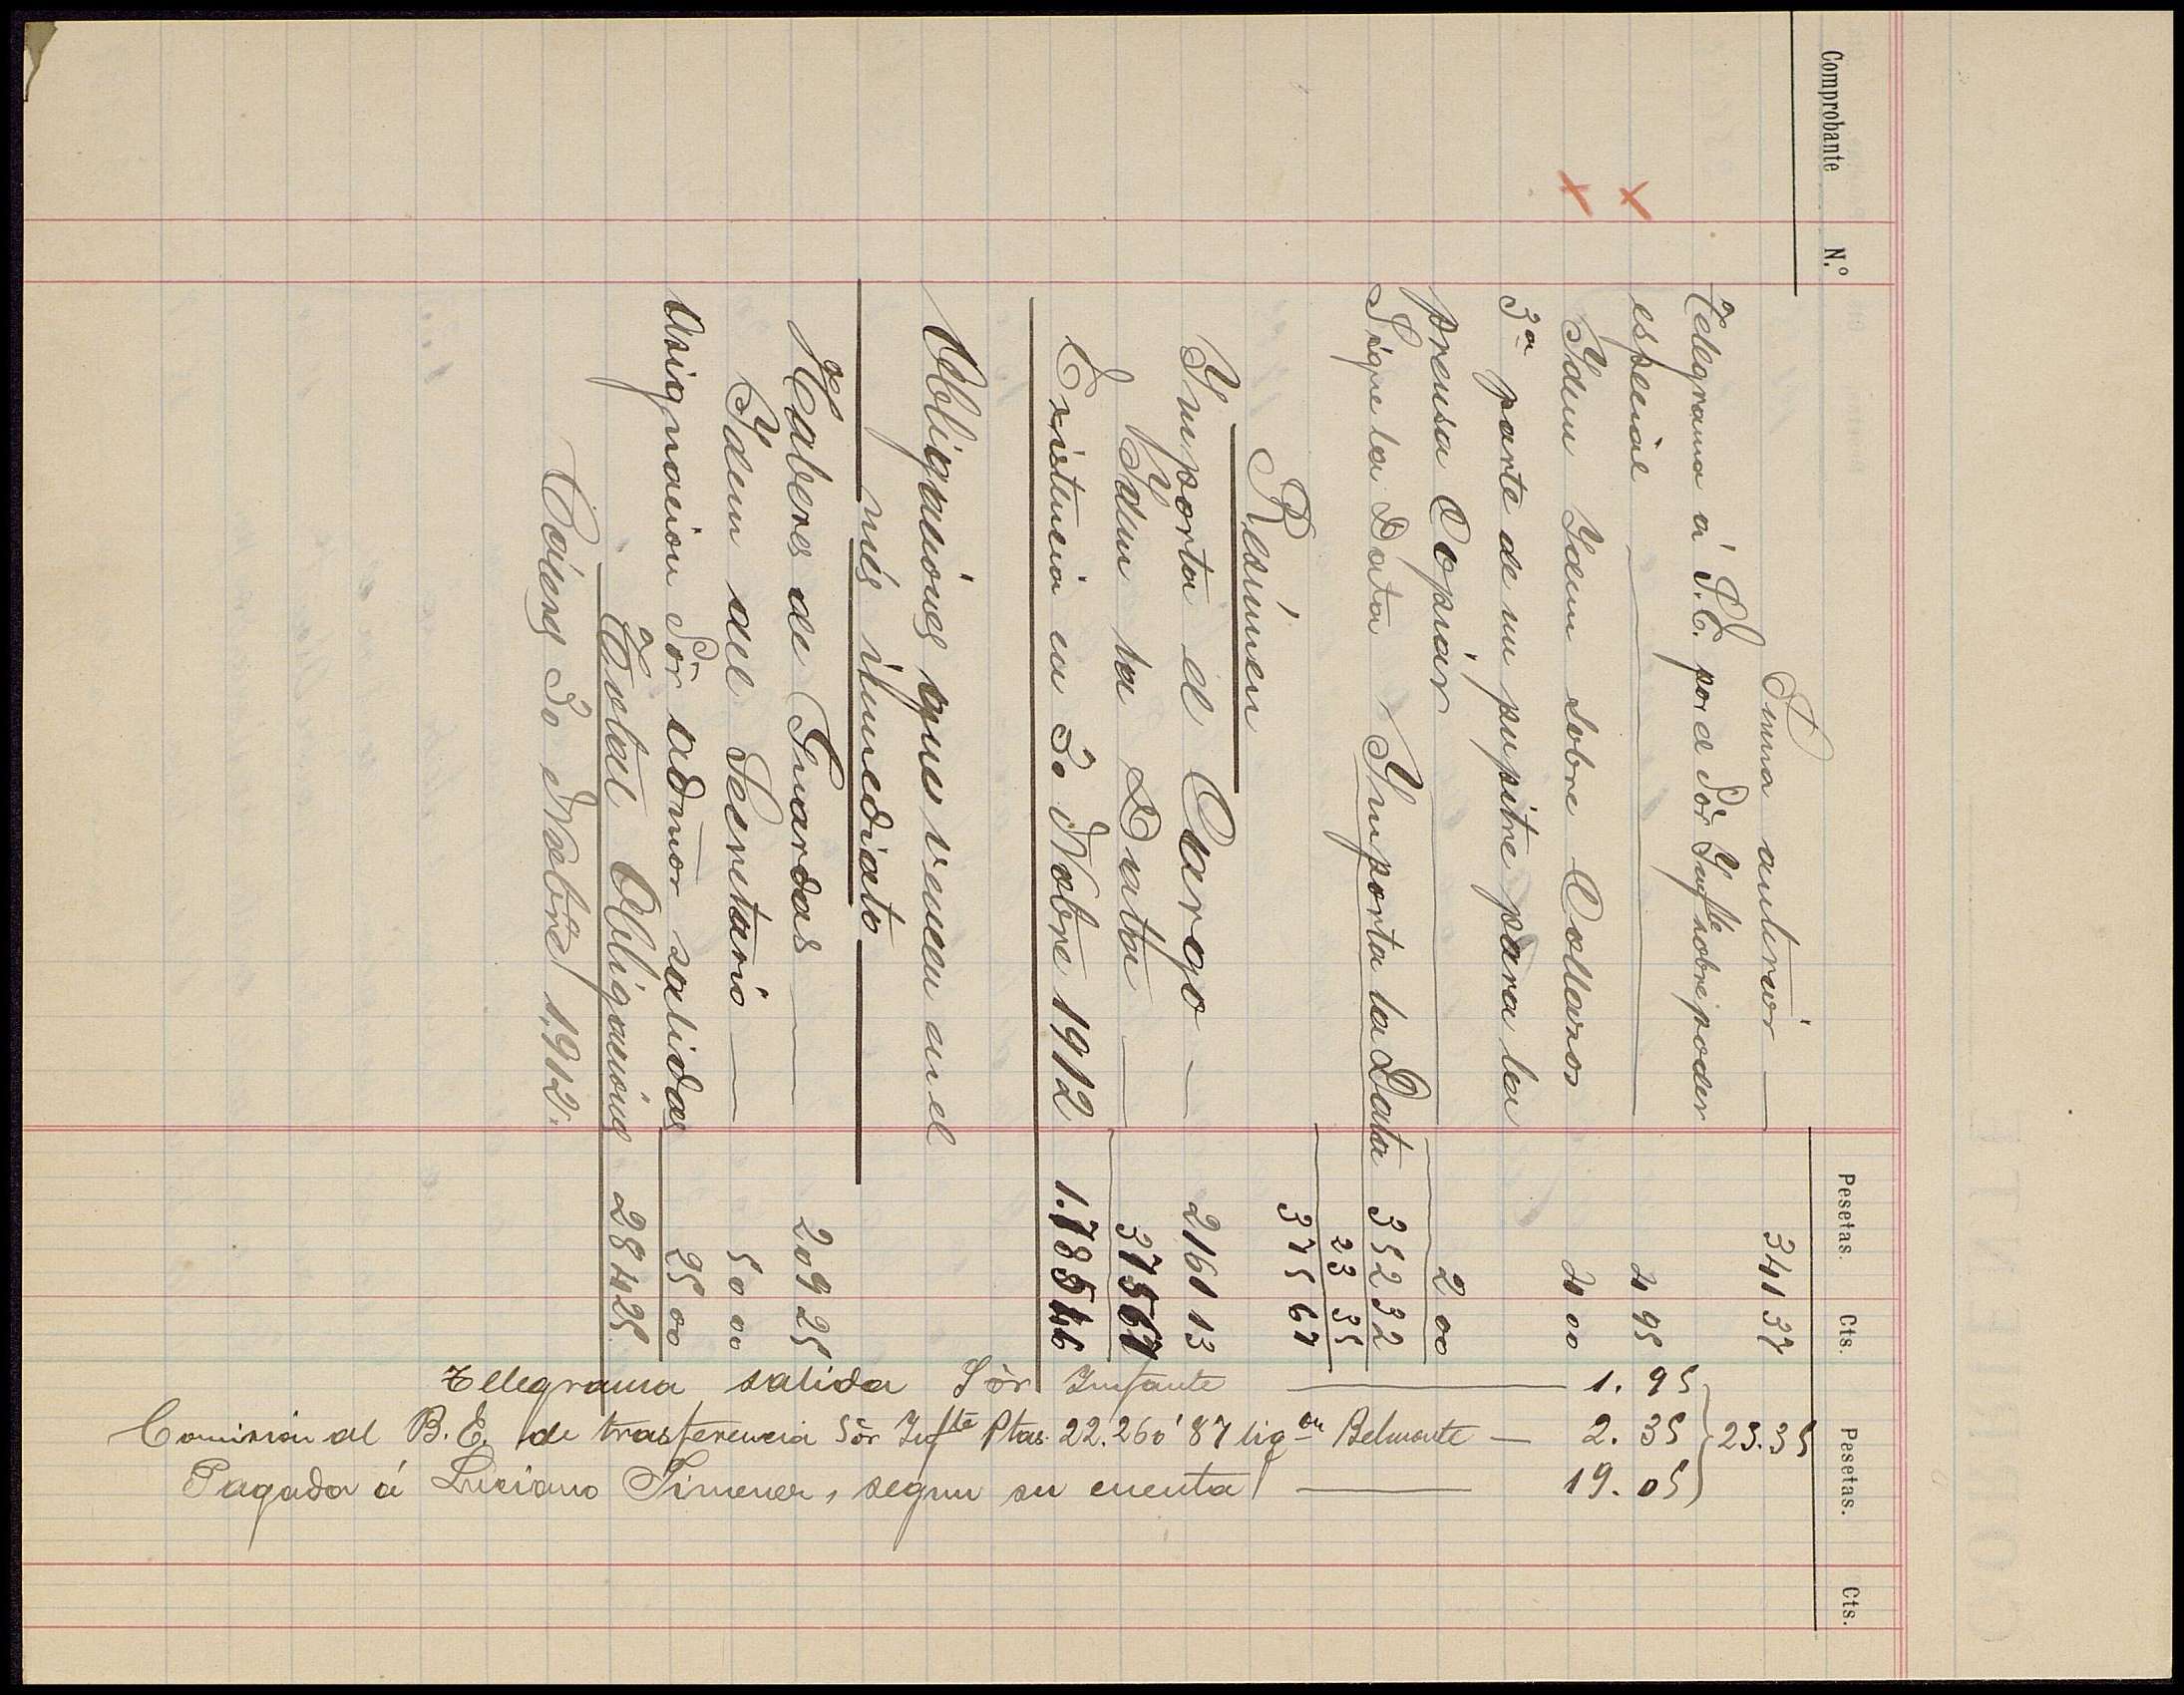 Comprobante N.º Pesetas. Cts. Pesetas. Cts.
Suma anterior — 341 37
Telegrama á S.E. por el Sör Infte sobre poder
especial — 4 95
Idem Idem sobre Collazos 4 00
3ª parte de un pupitre para la
prensa Copiár — 2 00
Sigue la Data / Importa la Data 352 32
23 35
375 67
Resúmen
Importa el Cargo — 2161 13
Idem la Data — 375 67
Existencia en 30 Nobre 1912 1.785 46
Obligaciónes que vencen en el
més inmediato
Haberes de Guardas — 209 25
Idem del Secretario — 50 00
Asignación Sör Admor salidas 25 00
Total Obligacióne 284 25
Cáceres 30 Nobre 1,912.
Telegrama salida Sör Infante — 1.95
Comisión al B. E. de trasferencia Sör Infte Ptas. 22.260'87 lig on Belmonte — 2.35 } 23.35
Pagado á Luciano Jimenez, segun su cuenta — 19.05